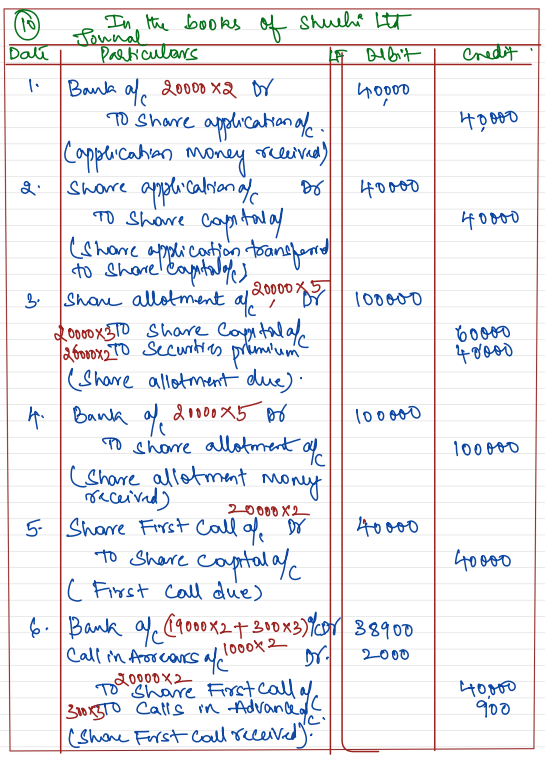 (10) In the books of Shruthi Ltd
Journal
Date Particulars LF Debit Credit
1. Bank a/c 20000×2 Dr 40,000
To Share application a/c. 40,000
(application money received)
2. Share application a/c Dr 40000
To Share capital a/ 40000
(Share application transferred
to Share capital a/c)
3. Share allotment a/c 20000×5 Dr 100000
20000×3 To Share Capital a/c 60000
20000×2 To Securities premium 40000
(Share allotment due).
4. Bank a/c 20000×5 Dr 100000
To Share allotment a/c 100000
(Share allotment money
received)
20000×2
5. Share First Call a/c Dr 40000
To Share capital a/c 40000
(First Call due)
6. Bank a/c (19000×2+300×3) a/c Dr 38900
Call in Arrears a/c 1000×2 Dr. 2000
20000×2
To Share First call a/c 40,000
300×3 To Calls in Advance a/c. 900
(Share First call received).